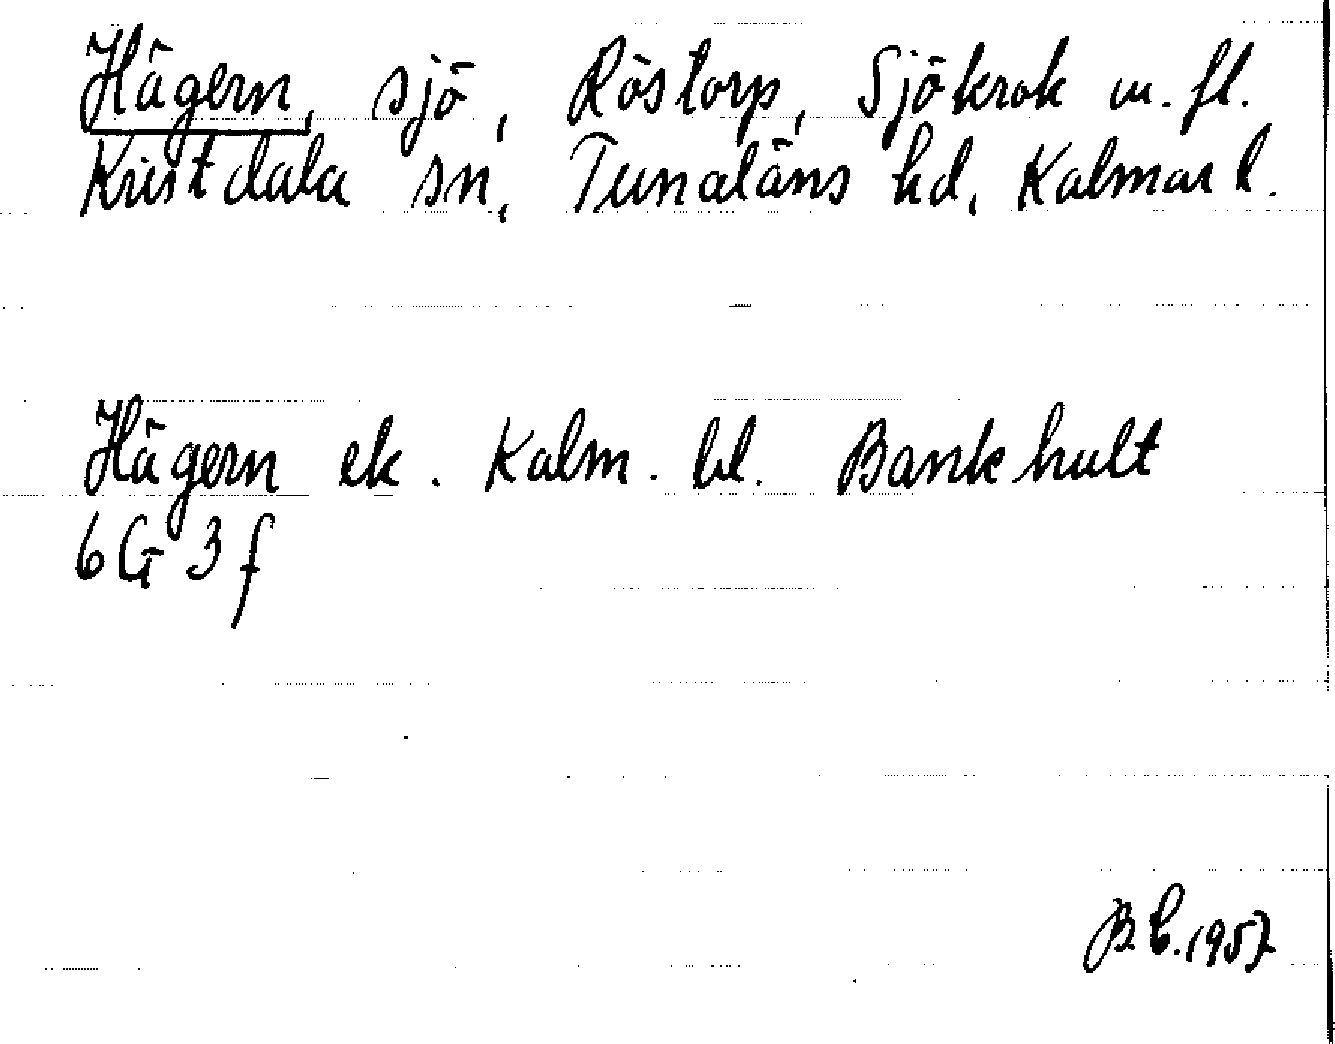 Hägern, sjö, Röstorp, Sjökrok m. fl.
Kristdala sn, Tunaläns hd, Kalmar l.
Hägern ek. Kalm. bl. Bankhult
6 G 3 f
1957